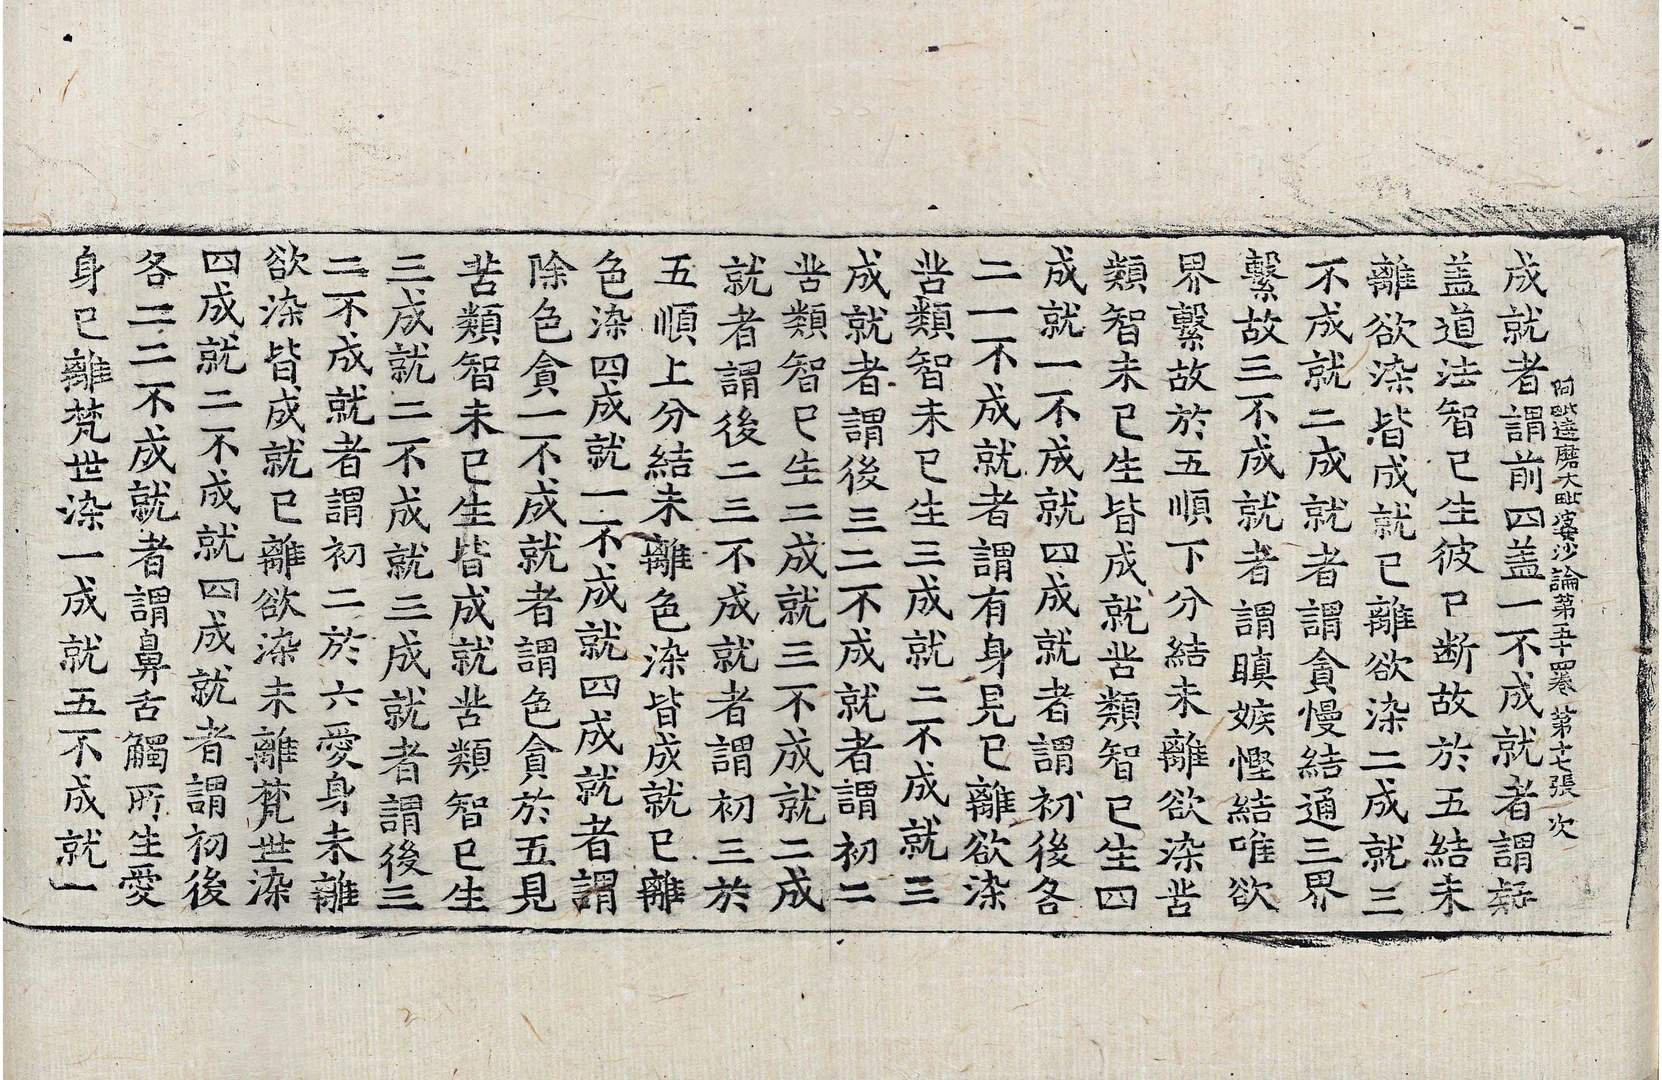 阿毗達磨大毗婆沙論第五十四卷 第七張 次
成就者謂前四盖一不成就者謂疑
盖道法智已生彼已断故於五結未
離欲染皆成就已離欲染二成就三
不成就二成就者謂貪慢結通三界
繫故三不成就者謂瞋嫉慳結唯欲
界繫故於五順下分結未離欲染苦
類智未已生皆成就苦類智已生四
成就一不成就四成就者謂初後各
二一不成就者謂有身見已離欲染
苦類智未已生三成就二不成就三
成就者謂後三二不成就者謂初二
苦類智已生二成就三不成就二成
就者謂後二三不成就者謂初三於
五順上分結未離色染皆成就已離
色染四成就一不成就四成就者謂
除色貪一不成就者謂色貪於五見
苦類智未已生皆成就苦類智已生
三成就二不成就三成就者謂後三
二不成就者謂初二於六愛身未離
欲染皆成就已離欲染未離梵世染
四成就二不成就四成就者謂初後
各二二不成就者謂鼻舌觸所生愛
身已離梵世染一成就五不成就一